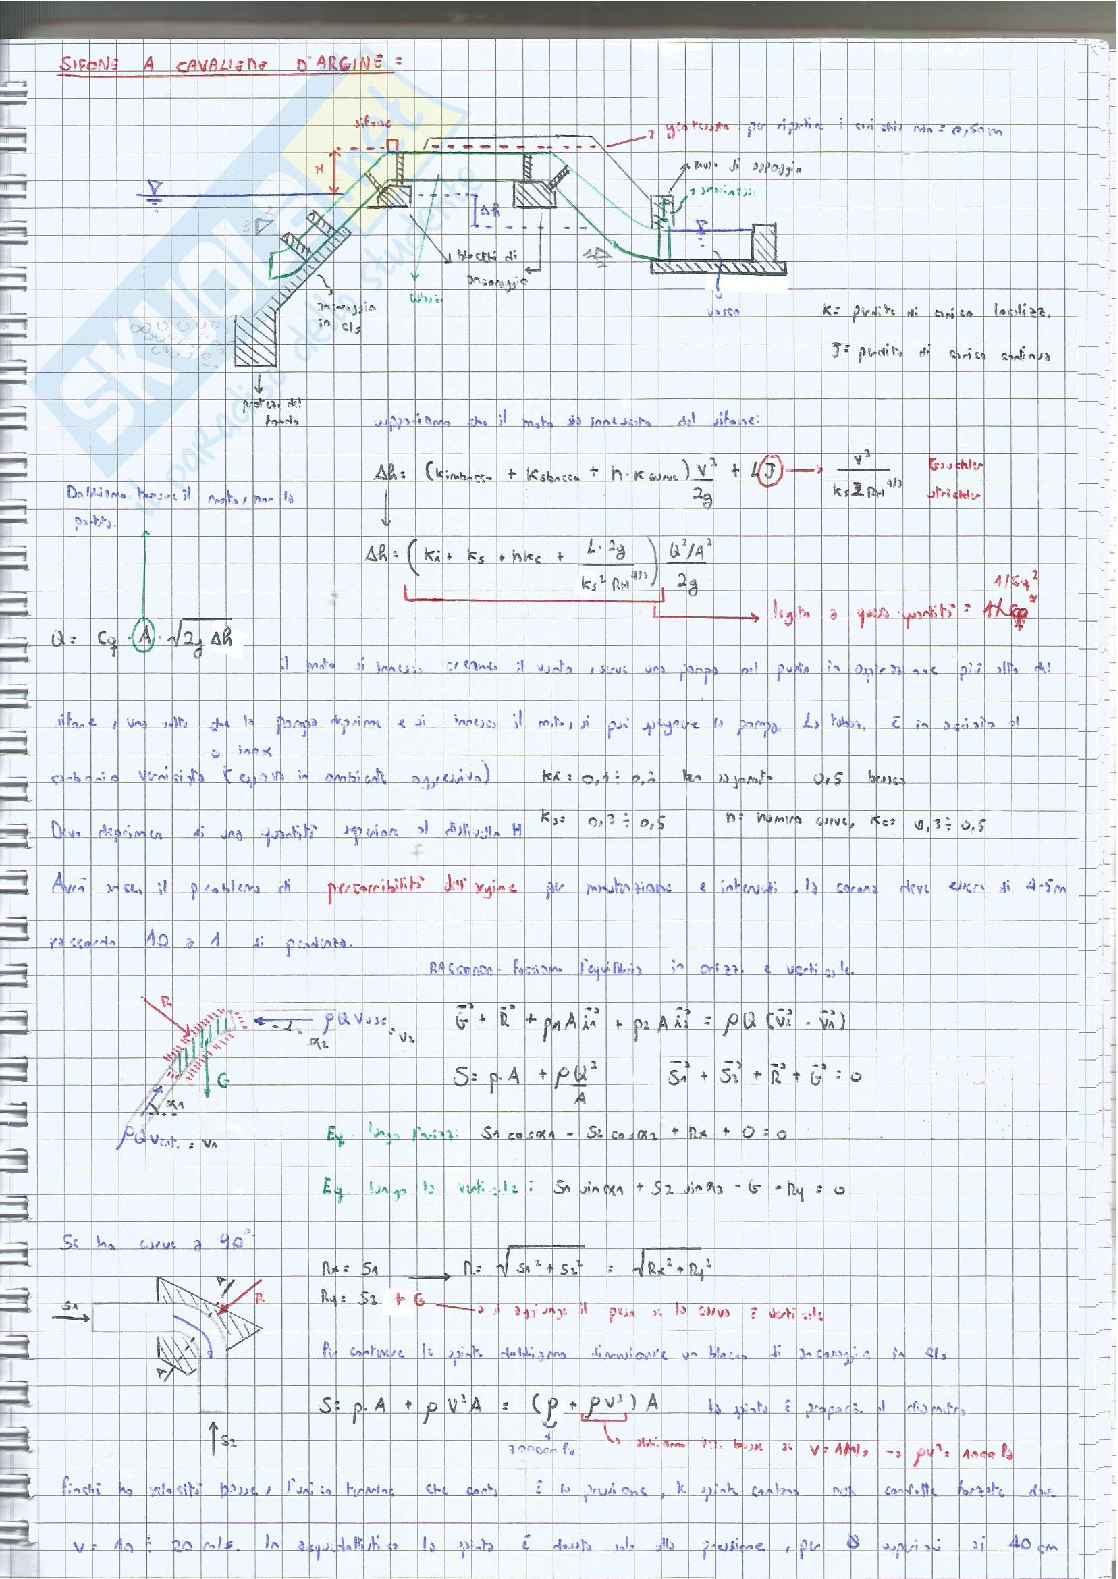 SIFONE A CAVALIERE D'ARGINE =
sifone
H
Δh
per ripartire i carichi min = 0,50m
muro di appoggio
blocchi di ancoraggio
ancoraggio in cls
vasca
K = perdite di carico localizz.
J = perdite di carico continua
protez. del fondo
supponiamo che il moto sia innescato nel sifone:
Δh = (Kimbocco + Ksbocco + n·Kcurve) V²/2g + LJ → V²/Ks² RH^4/3 Gauckler Strickler
Dobbiamo the il moto, non la portata.
Δh = (Ki + Ks + nKc + L·2g/Ks² RH^4/3) Q²/A²/2g
1/Cq²
legato a questa quantità =
Q = Cq · A · √2g Δh
il moto si innesca creando il vuoto, serve una pompa nel punto in più alto del
sifone, una volta che la pompa deprime e si innesca il moto, si può spegnere la pompa. La tubaz. è in acciaio al
o inox
carbonio verniciato (esposto in ambiente aggressivo) Ki = 0,1 ÷ 0,2 ben sagomato 0,5
Deve deprimere di una quantità superiore al dislivello H Ks = 0,3 ÷ 0,5 n = numero curve, Kc = 0,3 ÷ 0,5
Avrò anche il problema di percorribilità dell'argine per manutenzione e interventi, la corona deve essere di 4-5m
raccordo 10 a 1 di pendenza.
facciamo l'equilibrio in orizz. e verticale.
R
ρQV = V2
α2
G
α1
ρQV = V1
G + R + p1 A i1 + p2 A i2 = ρQ (V2 - V1)
S = p·A + ρQ²/A S1 + S2 + R + G = 0
Eq. lungo l'orizz: S1 cosα1 - S2 cosα2 + Rx + 0 = 0
Eq. lungo la verticale: S1 sinα1 + S2 sinα2 - G - Ry = 0
Se ho curve a 90°
Rx = S1 → R = √S1² + S2² = √Rx² + Ry²
Ry = S2 + G → si aggiunge il peso se la curva è verticale
S1
R
A
A
S2
Per contenere la spinta dobbiamo dimensionare un blocco di ancoraggio in cls
S = p·A + ρV²A = (p + ρV²) A la spinta è proporz. al diametro
abbiamo vel. basse di V = 1m/s → ρV² = 1000 Pa
finché ho velocità basse, l'unico termine che conta è la pressione, le spinte contano nelle condotte forzate dove
V = 10 ÷ 20 m/s. In acquedottistica la spinta è dovuta solo alla pressione, per Ø superiori ai 40 cm